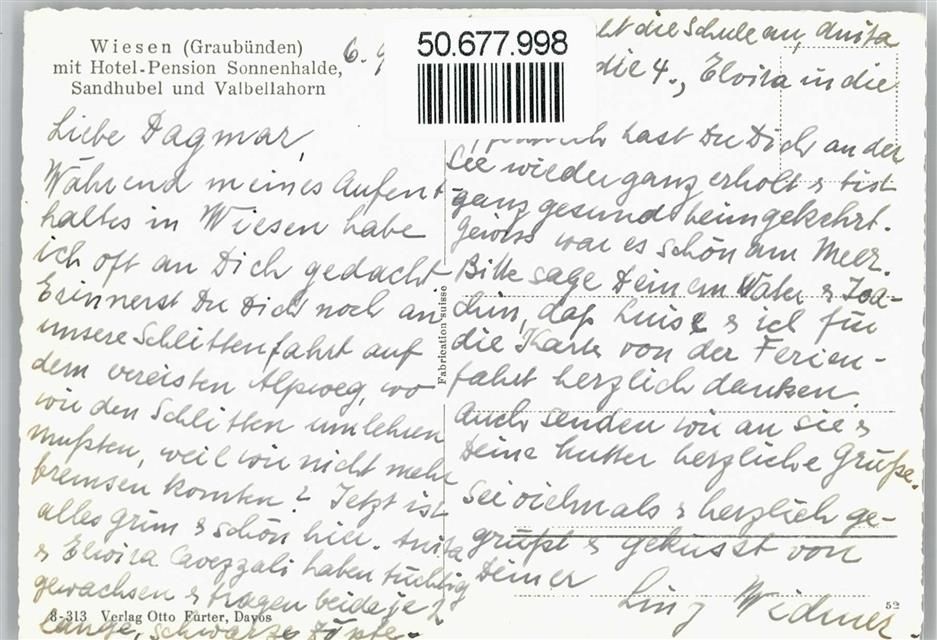 Wiesen (Graubünden)
mit Hotel-Pension Sonnenhalde,
Sandhubel und Valbellahorn
6. 9
50.677.998
Liebe Dagmar,
Während meines Aufent-
haltes in Wiesen habe
ich oft an Dich gedacht.
Erinnerst Du Dich noch an
unsere Schlittenfahrt auf
dem vereisten Alpweg, wo
wir den Schlitten umkehren
mußten, weil wir nicht mehr
bremsen konnten? Jetzt ist
alles grün & schön hier. Anita
& Elvira Cavezzali haben tüchtig
gewachsen & tragen beide je 2
lange, schwarze Zöpfe.
8-313 Verlag Otto Furter, Davos
Fabrication suisse
die Schule an, Anita
die 4., Elvira in die
hast Du Dich an der
See wieder ganz erholt & bist
ganz gesund heimgekehrt.
Gewiss war es schön am Meer.
Bitte sage Deinem Vater & Joa-
chim, daß Luise & ich für
die Karte von der Ferien-
fahrt herzlich danken.
Auch senden wir an sie &
Deine Mutter herzliche Grüße.
Sei vielmals & herzlich ge-
grüßt & geküsst von
Deiner
Widmer.
52